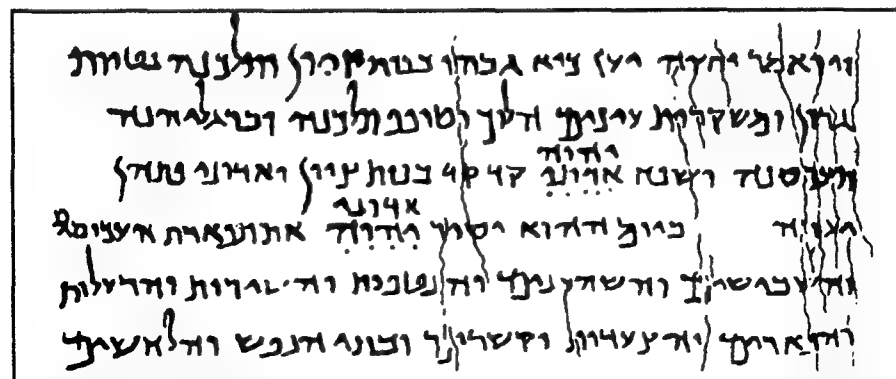 ויואמר יהוה יען כיא גבהו בנות ציון ותלכנה נטוות
גרון ומשקרות עינים הלוך וטופף תלכנה וברגליהנה
יהוה
תעכסנה ושפח אדוני קדקד בנות ציון ואדוני פתהן
אדוני
יערה ביום ההוא יסיר יהוה את תפארת העכסים
והשבישים והשהרנים והנטפות והשירות והרעלות
והפארים והצעדות והקשרים ובתי הנפש והלחשים